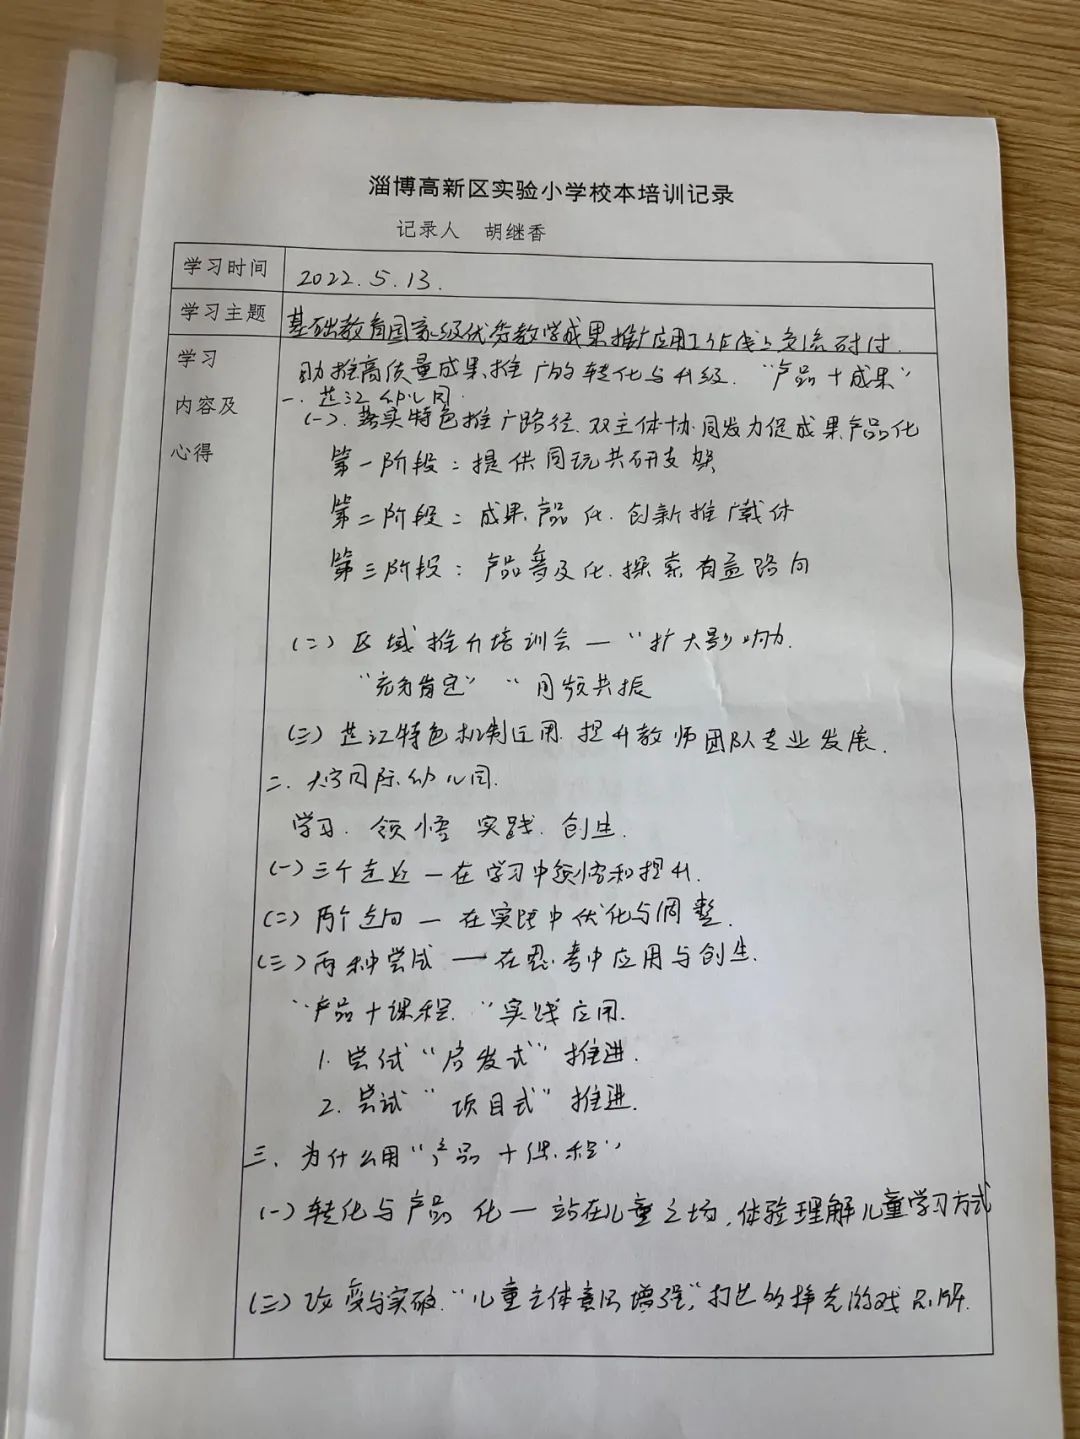 淄博高新区实验小学校本培训记录
记录人 胡继香
学习时间 2022.5.13.
学习主题 基础教育国家级优秀教学成果推广应用工作线上交流研讨.
学习
内容及
心得
助推高质量成果推广的转化与升级. "产品+成果"
一. 芷江幼儿园.
(一). 落实特色推广路径. 双主体协同发力促成果产品化
第一阶段: 提供同玩共研支架
第二阶段: 成果产品化. 创新推广载体
第三阶段: 产品普及化. 探索有益路向
(二) 区域推介培训会 — "扩大影响力.
"充分肯定" "同频共振
(三) 芷江特色机制应用. 提升教师团队专业发展.
二. 国际幼儿园.
学习. 领悟 实践. 创生.
(一) 三个走近 — 在学习中领悟和提升.
(二) 两个走向 — 在实践中优化与调整.
(三) 两种尝试 — 在思考中应用与创生.
"产品+课程. "实践应用.
1. 尝试"启发式"推进.
2. 尝试"项目式"推进.
三. 为什么用"产品+课程"
(一) 转化与产品化 — 站在儿童立场, 体验理解儿童学习方式
(二) 改变与实破. "儿童主体意识增强,"